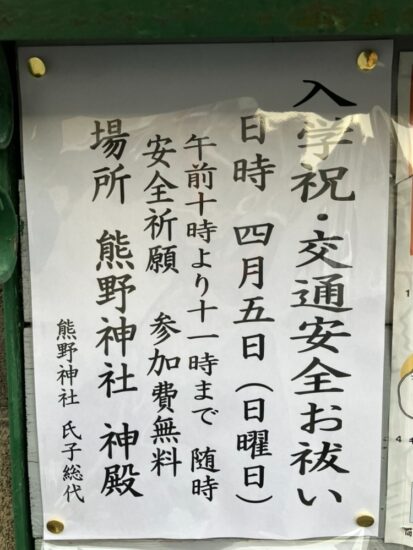 入学祝・交通安全お祓い
日時 四月五日(日曜日)
午前十時より十一時まで 随時
安全祈願 参加費無料
場所 熊野神社 神殿
熊野神社 氏子総代